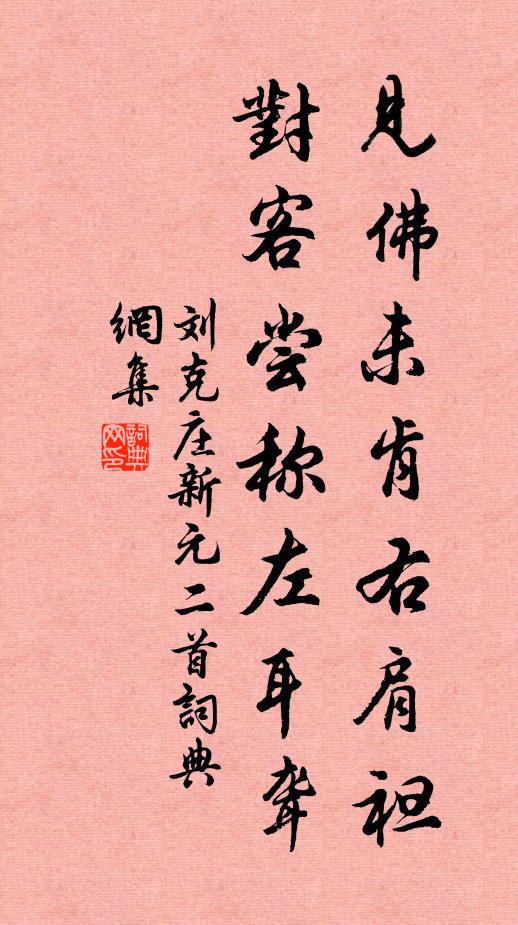 見佛未肯右肩袒
對客尝称左耳聋
刘克庄新元二首詞典
網集
詞典網印